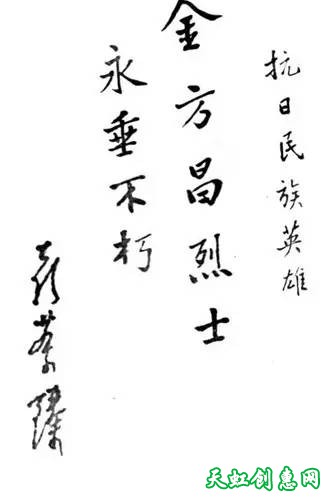 抗日民族英雄
金方昌烈士
永垂不朽
天虹创意网